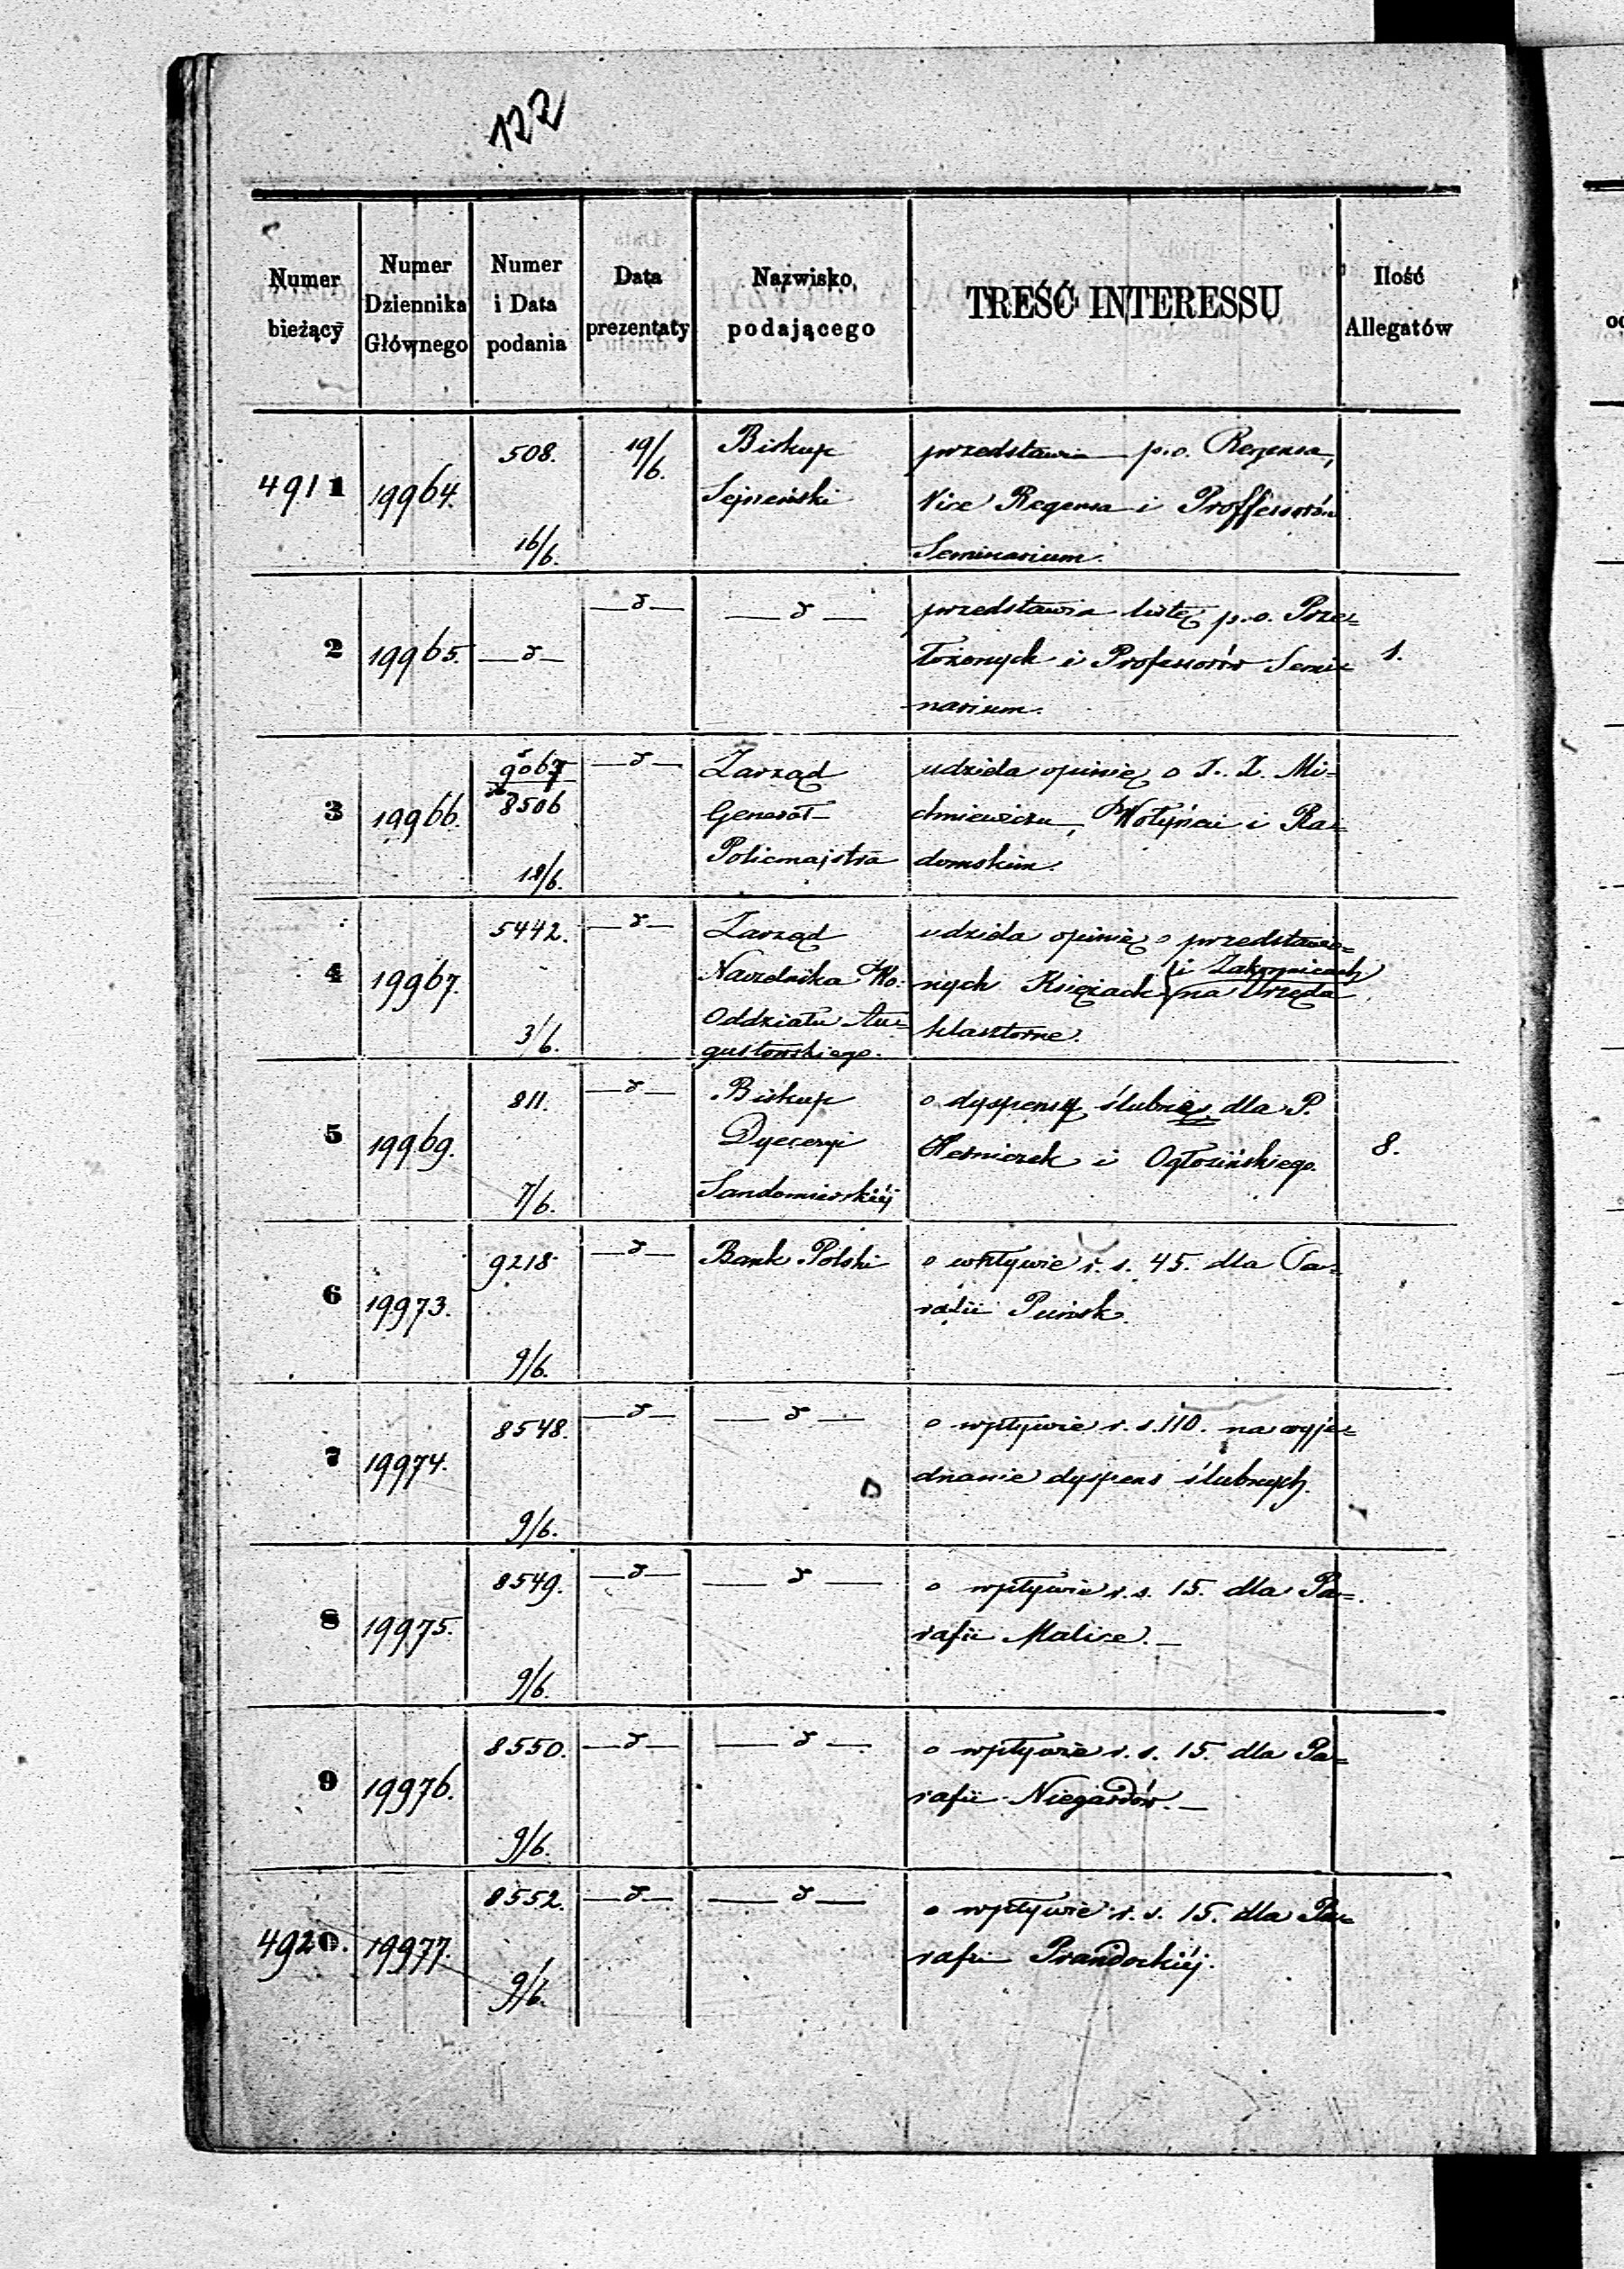 122
Numer bieżący
Numer Dziennika Głównego
Numer i Data podania
Data prezentaty
Nazwisko podającego
TREŚĆ INTERESSU
Ilość Allegatów
4911 19964. 508. 16/6. 19/6. Biskup Sejneński
przedstawia p.o. Regensa,
Vice Regensa i Proffessorów
Seminarium.
2 19965. —d— —d— —d—
przedstawia listę p.o. Prze=
łożonych i Professorów Semi=
narium.
1.
3 19966. 9067 8506 18/6. —d—
Zarząd
Generał
Policmajstra
udziela opinię o X. X. Mi=
chniewiczu, Wołyńcu i Ra=
domskim.
4 19967. 5442. 3/6. —d—
Zarząd
Naczelnika Wo.
Oddziału Au=
gustowskiego.
udziela opinię o przedstawio=
nych Księżach i Zakonnicach na Urzęda
klasztorne.
5 19969. 811. 7/6. —d—
Biskup
Dyecezyi
Sandomierskiéj
o dyspensę ślubną dla P.
i Ogłozińskiego.
8.
6 19973. 9218 9/6. —d— Bank Polski
o wpływie r. s. 45. dla Pa=
rafii Puńsk.
7 19974. 8548. 9/6. —d— —d—
o wpływie r. s. 110. na wyje=
dnanie dyspens ślubnych.
8 19975. 8549. 9/6. —d— —d—
o wpływie r. s. 15. dla Pa=
rafii Malice. —
9 19976. 8550. 9/6. —d— —d—
o wpływie r. s. 15. dla Pa=
rafii Niegardów. —
4920. 19977. 8552. 9/6. —d— —d—
o wpływie r. s. 15. dla Pa=
rafii Prandockiéj.